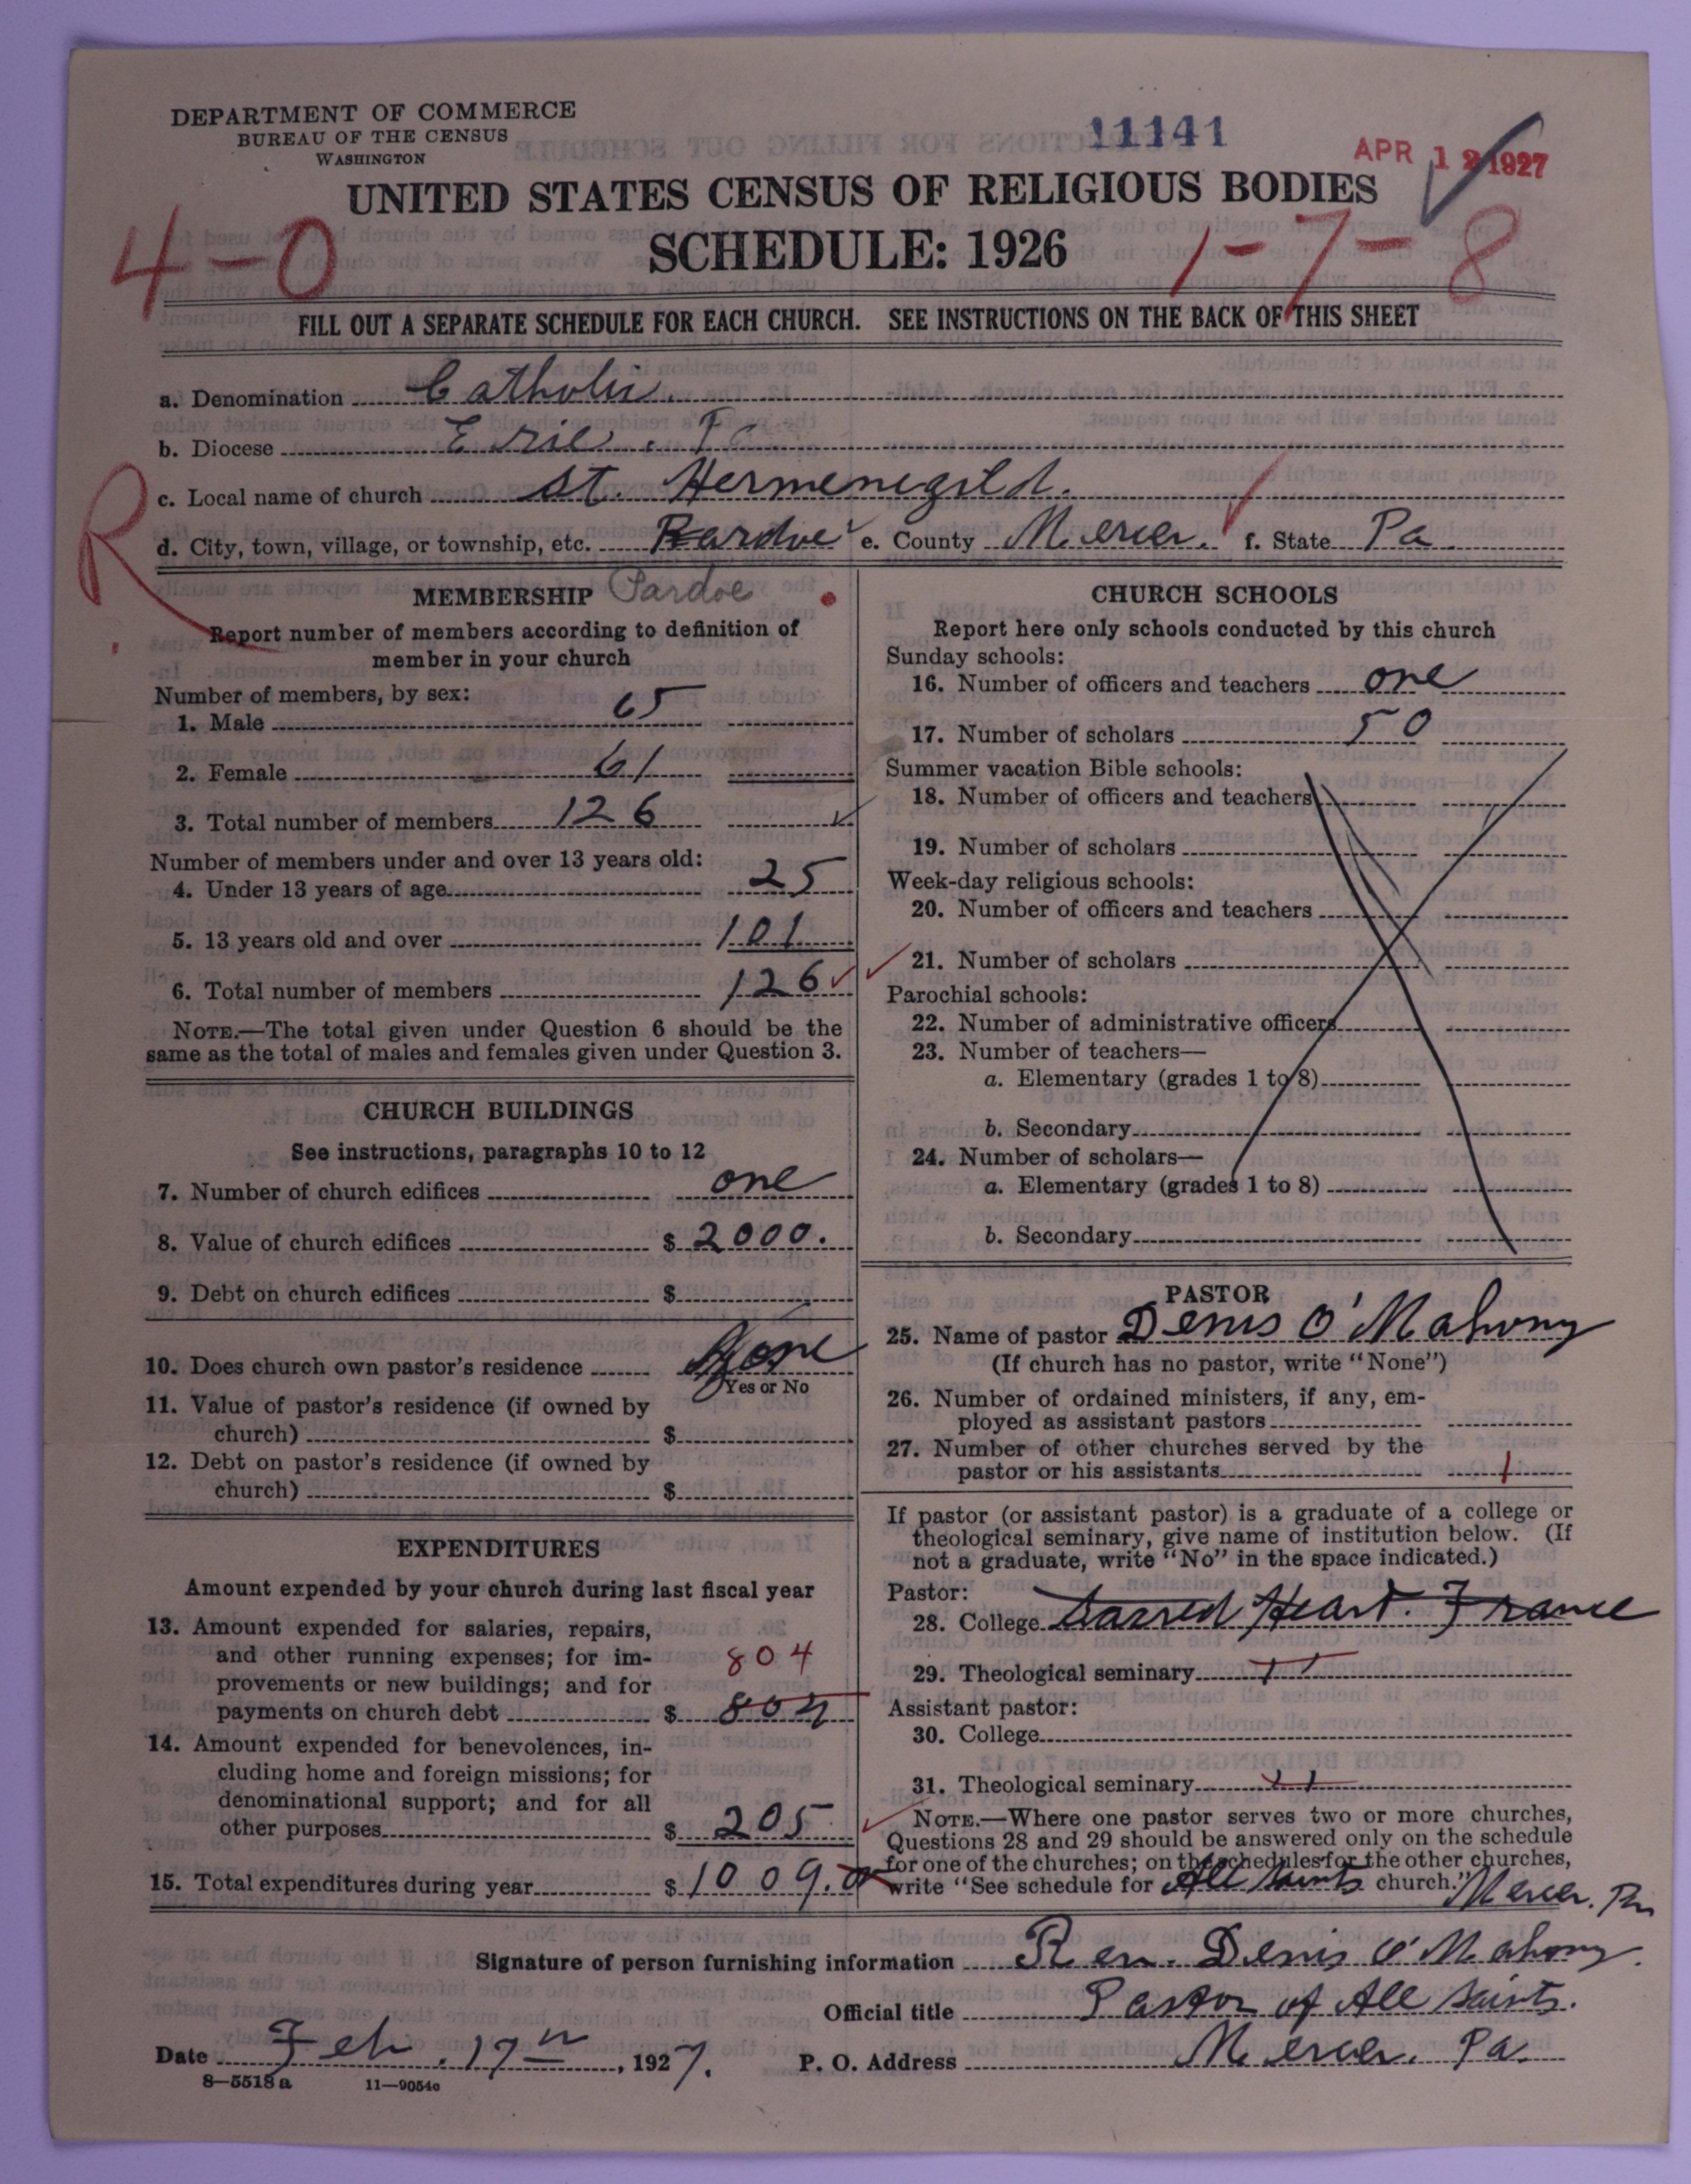 DEPARTMENT OF COMMERCE
BUREAU OF THE CENSUS
WASHINGTON
11141
APR 12 1927
UNITED STATES CENSUS OF RELIGIOUS BODIES
SCHEDULE: 1926
4-0
1-7-8
FILL OUT A SEPARATE SCHEDULE FOR EACH CHURCH. SEE INSTRUCTIONS ON THE BACK OF THIS SHEET
a. Denomination Catholic
b. Diocese Erie, Pa
c. Local name of church St. Hermenegild.
R
d. City, town, village, or township, etc. Pardoe e. County Mercer. f. State Pa.
MEMBERSHIP Pardoe
Report number of members according to definition of
member in your church
Number of members, by sex:
1. Male 65
2. Female 61
3. Total number of members 126
Number of members under and over 13 years old:
4. Under 13 years of age 25
5. 13 years old and over 101
6. Total number of members 126
NOTE.—The total given under Question 6 should be the
same as the total of males and females given under Question 3.
CHURCH BUILDINGS
See instructions, paragraphs 10 to 12
7. Number of church edifices one
8. Value of church edifices $ 2000.
9. Debt on church edifices $
10. Does church own pastor's residence None
Yes or No
11. Value of pastor's residence (if owned by
church) $
12. Debt on pastor's residence (if owned by
church) $
EXPENDITURES
Amount expended by your church during last fiscal year
13. Amount expended for salaries, repairs,
and other running expenses; for im- 804
provements or new buildings; and for
payments on church debt $ 804
14. Amount expended for benevolences, in-
cluding home and foreign missions; for
denominational support; and for all
other purposes $ 205
15. Total expenditures during year $ 1009.
CHURCH SCHOOLS
Report here only schools conducted by this church
Sunday schools:
16. Number of officers and teachers one
17. Number of scholars 50
Summer vacation Bible schools:
18. Number of officers and teachers
19. Number of scholars
Week-day religious schools:
20. Number of officers and teachers
21. Number of scholars
Parochial schools:
22. Number of administrative officers
23. Number of teachers—
a. Elementary (grades 1 to 8)
b. Secondary
24. Number of scholars—
a. Elementary (grades 1 to 8)
b. Secondary
PASTOR
25. Name of pastor Denis O'Mahony
(If church has no pastor, write "None")
26. Number of ordained ministers, if any, em-
ployed as assistant pastors
27. Number of other churches served by the
pastor or his assistants 1
If pastor (or assistant pastor) is a graduate of a college or
theological seminary, give name of institution below. (If
not a graduate, write "No" in the space indicated.)
Pastor:
28. College Sacred Heart. France
29. Theological seminary
Assistant pastor:
30. College
31. Theological seminary
NOTE.—Where one pastor serves two or more churches,
Questions 28 and 29 should be answered only on the schedule
for one of the churches; on the schedules for the other churches,
write "See schedule for All Saints church." Mercer. Pa
Signature of person furnishing information Rev. Denis O'Mahony.
Official title Pastor of All Saints.
Date Feb. 17th, 1927. P. O. Address Mercer. Pa.
8—5518a 11—9054c